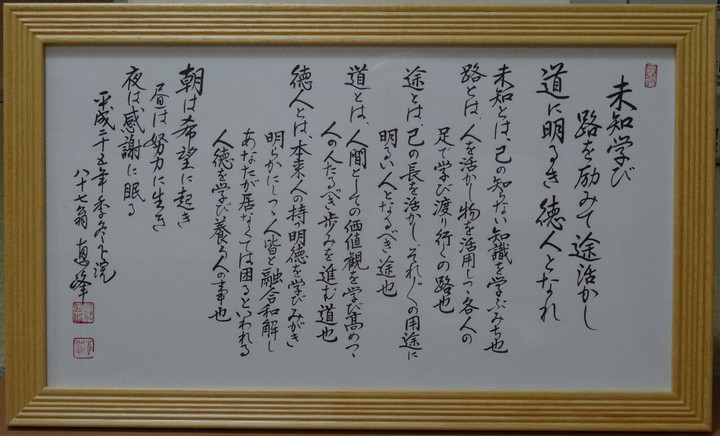 未知学び
路を励みて途活かし
道に明るき徳人となれ
未知とは、己の知らない知識を学ぶみち也
路とは、人を活かし物を活用しつゝ各人の
足で学び渡り行くの路也
途とは、己の長を活かし、それ〴〵の用途に
明るい人となるべき途也
道とは、人間としての価値観を学び高めつゝ
人の人たるべき歩みを進む道也
徳人とは、本来人の持つ明徳を学びみがき
明らかにしつゝ人皆と融合和解し
あなたが居なくては困るといわれる
人徳を学び養う人の事也
朝は希望に起き
昼は努力に生き
夜は感謝に眠る
平成二十五年季冬下院
八十七翁 恵峰